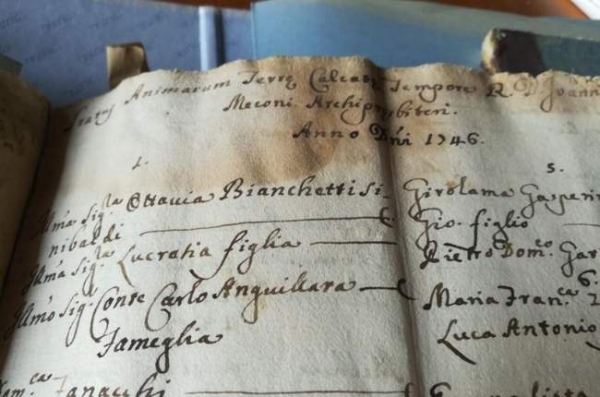 Status Animarum Terrę Calcatæ Tempore R. D. Joannis
Meconi Archipresbiteri.
Anno Dñi 1746.
1.
Illma Sig.la Ottavia Bianchetti Si-
nibaldi
Illma Sig.la Lucratia figlia
Illmo Sig. Conte Carlo Anguillara
Fameglia
5.
Girolama Gasperin
Gio. figlio
Pietro Dom.co
6.
Maria Fran.ca
Luca Antonio